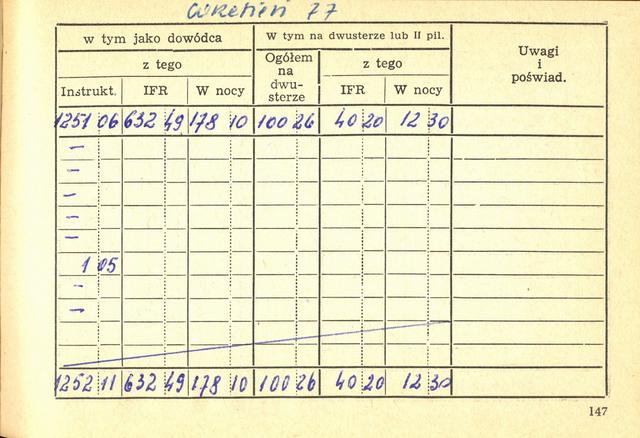 Wrzesień 77
w tym jako dowódca
W tym na dwusterze lub II pil.
Uwagi
i
poświad.
z tego
Ogółem
na
dwu-
sterze
z tego
Instrukt. IFR W nocy
IFR W nocy
1251 06 632 49 178 10 100 26 40 20 12 30
–
–
–
–
–
1 05
–
–
1252 11 632 49 178 10 100 26 40 20 12 30
147